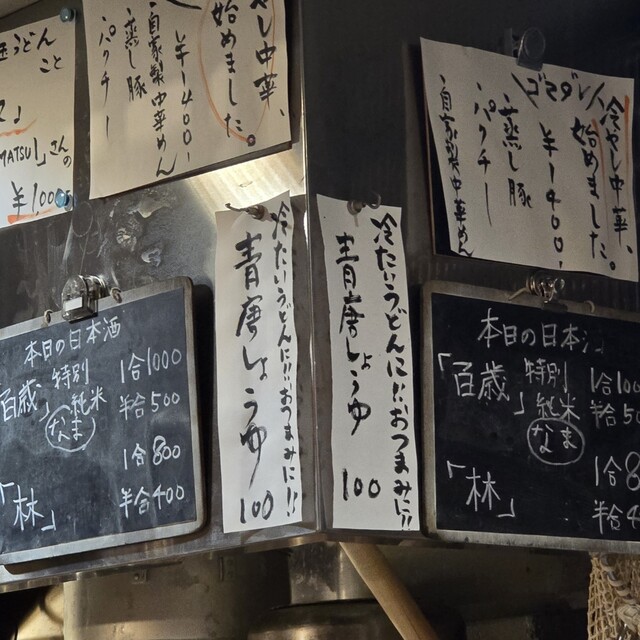 うどん
こと
MATSU」さんの
¥1000
冷やし中華、
始めました。
¥1400-
自家製中華めん
蒸し豚
パクチー
冷やし中華、
始めました。
〈ゴマダレ〉
¥1400-
蒸し豚
パクチー
自家製中華めん
冷たいうどんに!!おつまみに!!
青唐しょうゆ
100
冷たいうどんに!!おつまみに!!
青唐しょうゆ
100
本日の日本酒
「百歳」特別純米
なま
1合1000
半合500
「林」
1合800
半合400
本日の日本酒
「百歳」特別純米
なま
1合100
半合50
「林」
1合8
半合4